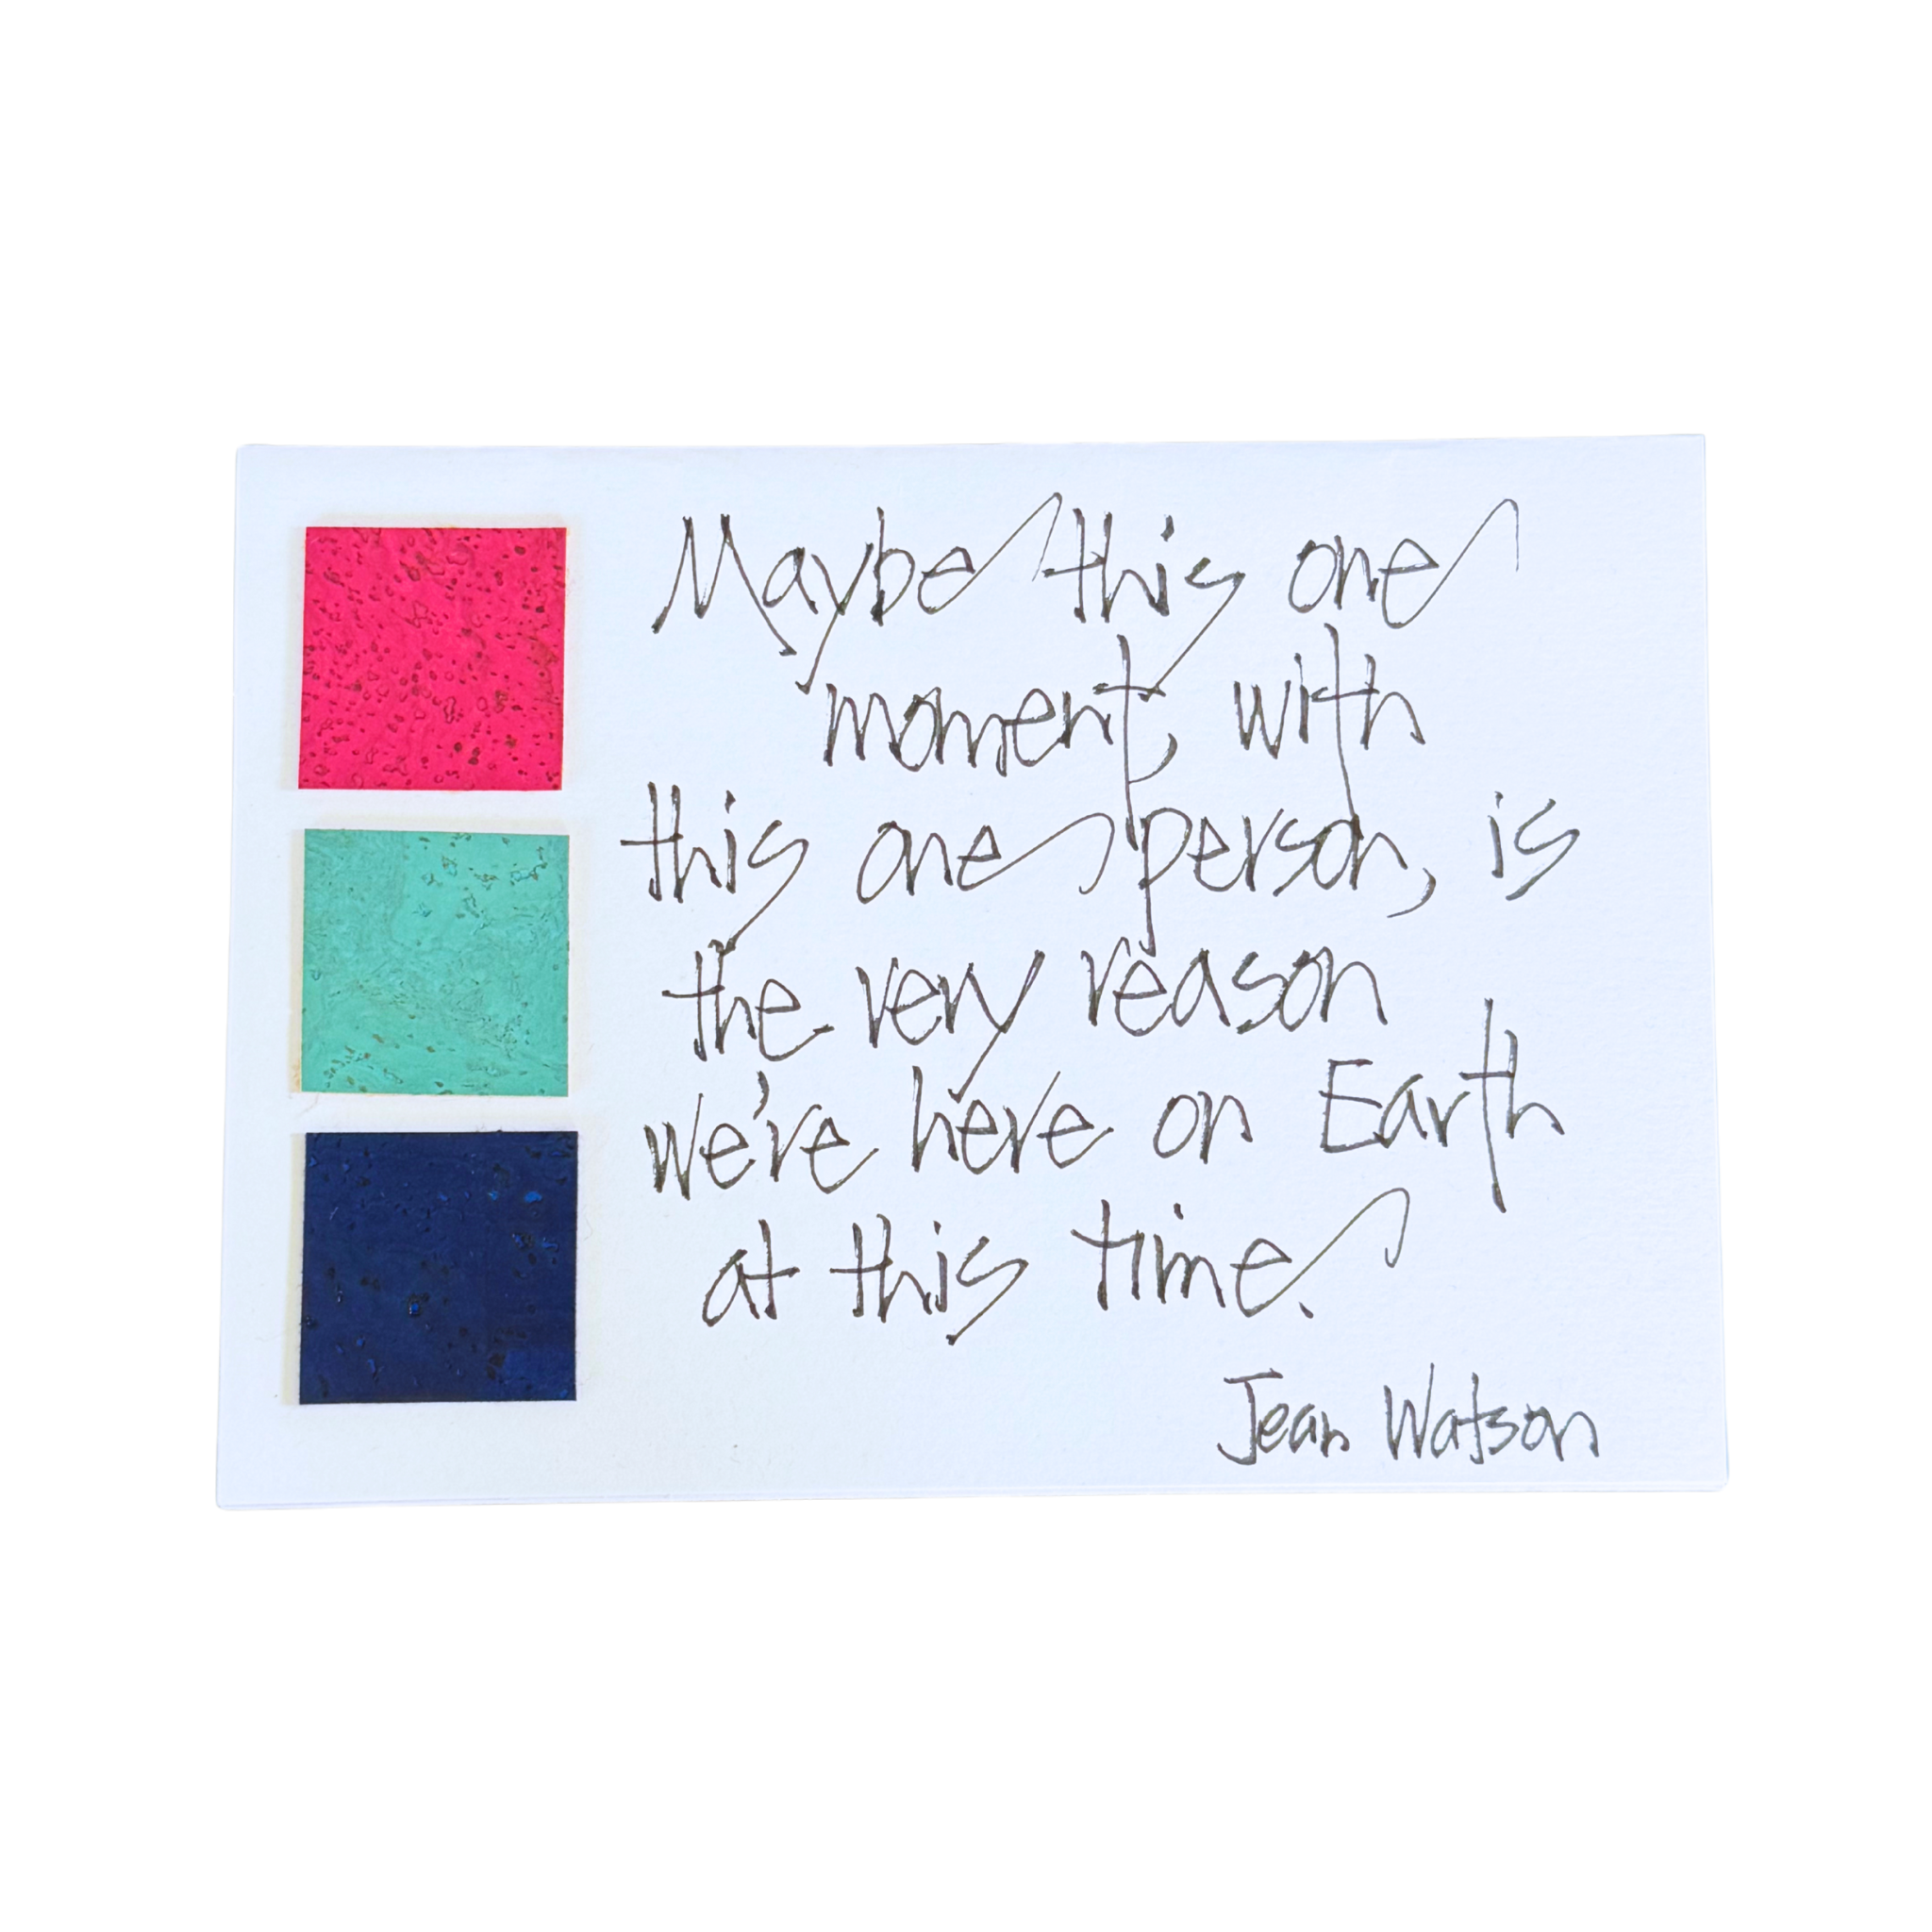 Maybe this one
moment, with
this one person, is
the very reason
we're here on Earth
at this time.
Jean Watson